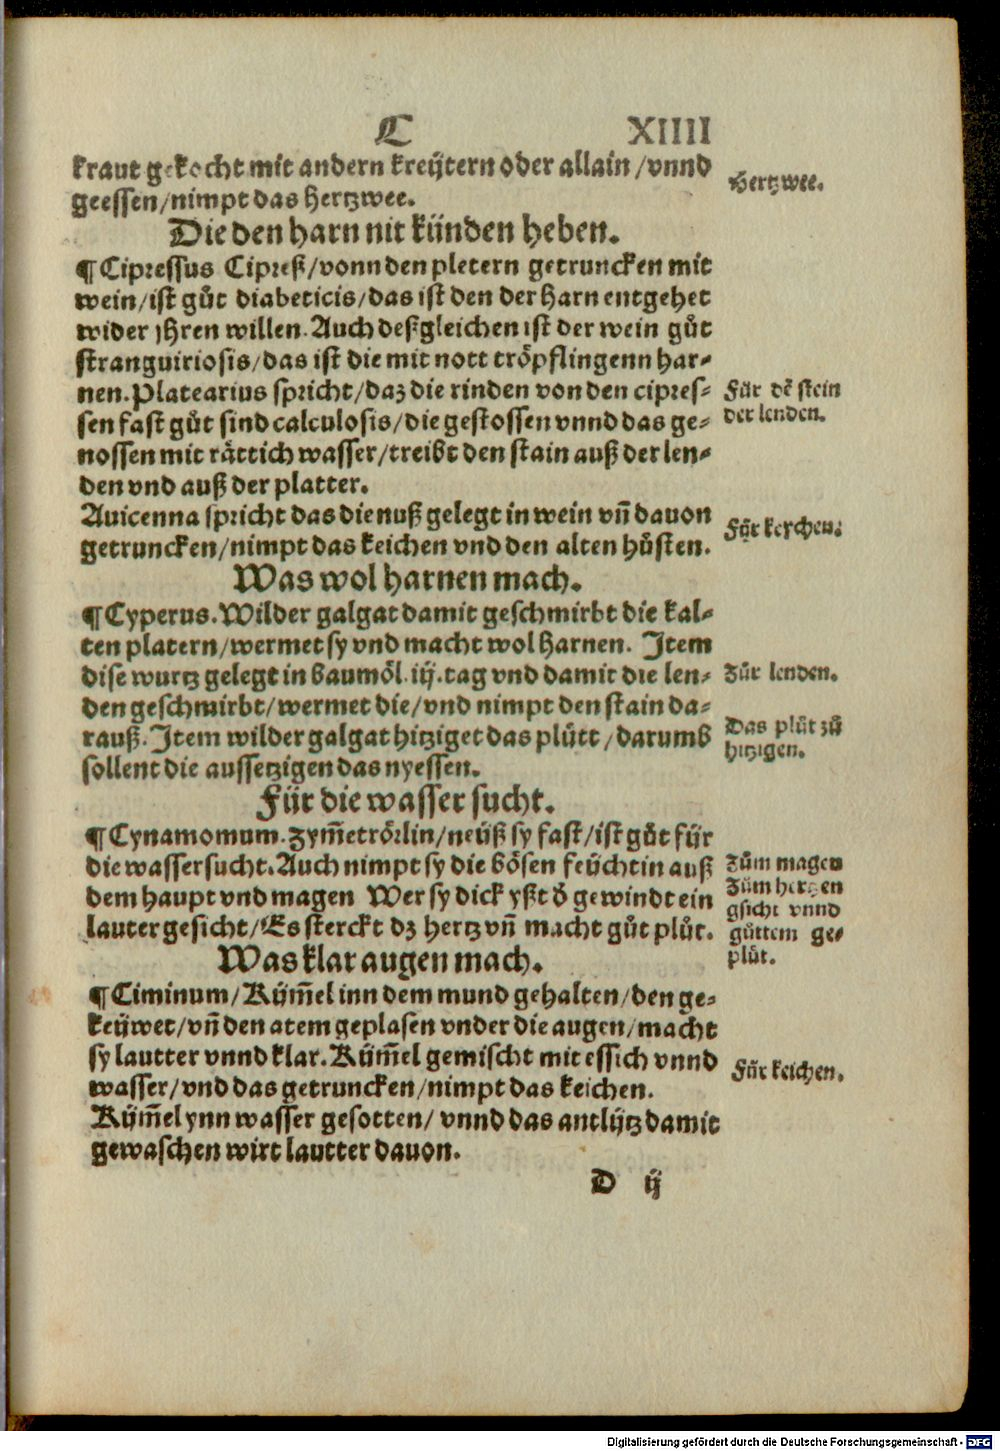 C XIIII
kraut gekocht mit andern kreÿtern oder allain / vnnd
geessen / nimpt das hertzwee.
Hertzwee.
Die den harn nit künden heben.
¶ Cipressus Cipreß / vonn den pletern getruncken mit
wein / ist gůt diabeticis / das ist den der harn entgehet
wider jhren willen. Auch deßgleichen ist der wein gůt
stranguiriosis / das ist die mit nott tröpflingenn har⸗
nen. Platearius spricht / daz die rinden von den cipres⸗
sen fast gůt sind calculosis / die gestossen vnnd das ge⸗
nossen mit rättich wasser / treibt den stain auß der len⸗
den vnd auß der platter.
Für dē stein
der lenden.
Auicenna spricht das die nuß gelegt in wein vñ dauon
getruncken / nimpt das keichen vnd den alten hůsten.
Für keychen.
Was wol harnen mach.
¶ Cyperus. Wilder galgat damit geschmirbt die kal⸗
ten platern / wermet sy vnd macht wol harnen. Item
dise wurtz gelegt in baumöl. iij. tag vnd damit die len⸗
den geschmirbt / wermet die / vnd nimpt den stain da⸗
rauß. Item wilder galgat hitziget das plůtt / darumb
sollent die aussetzigen das nyessen.
Für lenden.
Das plůt zů
hitzigen.
Für die wasser sucht.
¶ Cynamomum. zym̄etrörlin / neüß sy fast / ist gůt für
die wassersucht. Auch nimpt sy die bösen feüchtin auß
dem haupt vnd magen Wer sy dick yßt d̓ gewindt ein
lauter gesicht / Es sterckt dz hertz vñ macht gůt plůt.
Zům magen
Zům hertzen
gsicht vnnd
gůttem ge⸗
plůt.
Was klar augen mach.
¶ Ciminum / Küm̄el inn dem mund gehalten / den ge⸗
keüwet / vñ den atem geplasen vnder die augen / macht
sy lautter vnnd klar. Küm̄el gemischt mit essich vnnd
wasser / vnd das getruncken / nimpt das keichen.
Für keichen.
Küm̄el ynn wasser gesotten / vnnd das antlÿtz damit
gewaschen wirt lautter dauon.
D ij
Digitalisierung gefördert durch die Deutsche Forschungsgemeinschaft - DFG